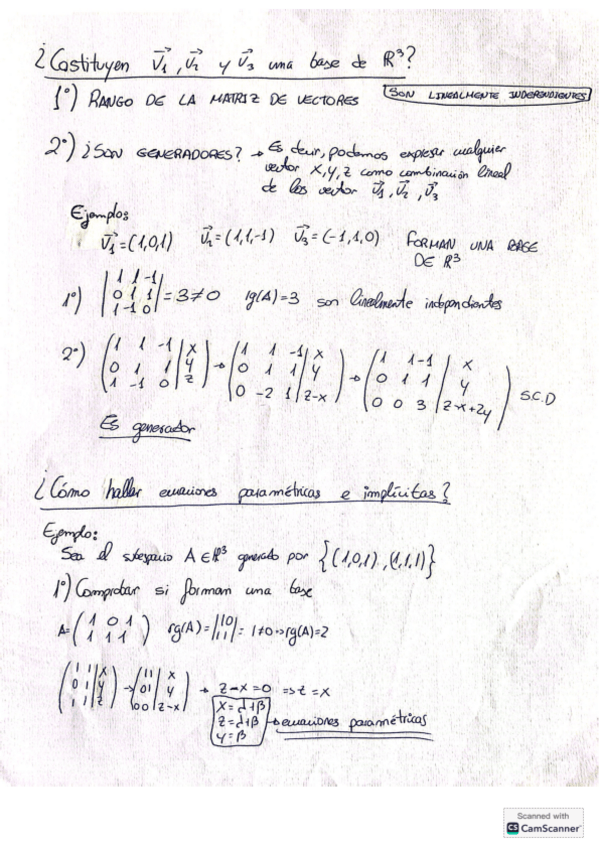 ¿Costituyen V₁, V₂ y V₃ una base de ℝ³?
1º) RANGO DE LA MATRIZ DE VECTORES SON LINEALMENTE INDEPENDIENTES
2º) ¿SON GENERADORES? → Es decir, podemos expresar cualquier
vector x, y, z como combinación lineal
de los vector V₁, V₂, V₃
Ejemplos
V₁=(1,0,1) V₂=(1,1,-1) V₃=(-1,1,0) FORMAN UNA BASE
DE ℝ³
1º) |1 1 -1; 0 1 1; 1 -1 0| = 3≠0 rg(A)=3 son linealmente independientes
2º) (1 1 -1 | x; 0 1 1 | y; 1 -1 0 | z) → (1 1 -1 | x; 0 1 1 | y; 0 -2 1 | z-x) → (1 1 -1 | x; 0 1 1 | y; 0 0 3 | z-x+2y) S.C.D
Es generador
¿Cómo hallar ecuaciones paramétricas e implícitas?
Ejemplo:
Sea el subespacio A∈ℝ³ generado por {(1,0,1),(1,1,1)}
1º) Comprobar si forman una base
A=(1 0 1; 1 1 1) rg(A)=|1 0; 1 1|=1≠0→rg(A)=2
(1 1 | x; 0 1 | y; 1 1 | z) → (1 1 | x; 0 1 | y; 0 0 | z-x) → z-x=0 => z=x
x=λ+β
z=λ+β → ecuaciones paramétricas
y=β
Scanned with
CS CamScanner